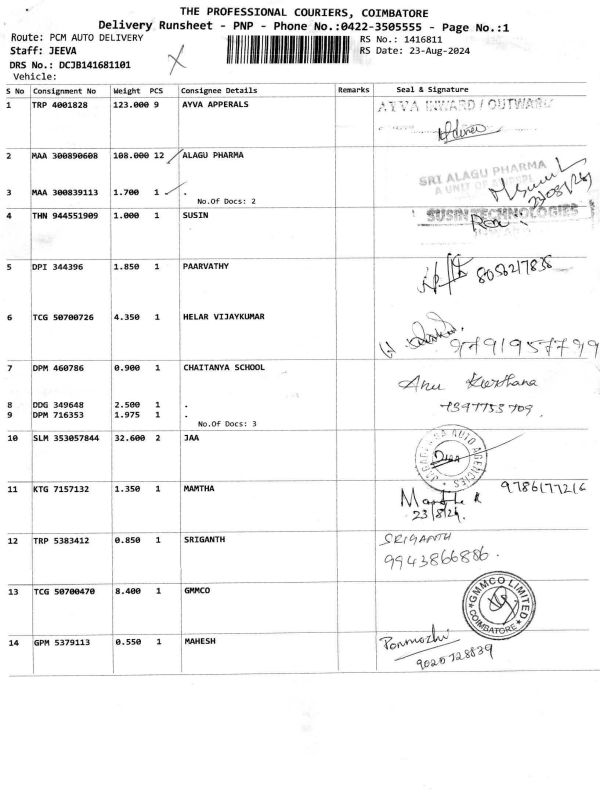 THE PROFESSIONAL COURIERS, COIMBATORE
Delivery Runsheet - PNP - Phone No.:0422-3505555 - Page No.:1
Route: PCM AUTO DELIVERY RS No.: 1416811
Staff: JEEVA RS Date: 23-Aug-2024
DRS No.: DCJB141681101
Vehicle:
S No Consignment No Weight PCS Consignee Details Remarks Seal & Signature
1 TRP 4001828 123.000 9 AYVA APPERALS AYVA INWARD / OUTWARD
2 MAA 300890608 108.000 12 ALAGU PHARMA SRI ALAGU PHARMA
3 MAA 300839113 1.700 1 . 23/08/24
No.Of Docs: 2
4 THN 944551909 1.000 1 SUSIN SUSIN TECHNOLOGIES
5 DPI 344396 1.850 1 PAARVATHY 8056217838
6 TCG 50700726 4.350 1 HELAR VIJAYKUMAR 9791957799
7 DPM 460786 0.900 1 CHAITANYA SCHOOL Anu
8 DDG 349648 2.500 1 . 7397753709.
9 DPM 716353 1.975 1 .
No.Of Docs: 3
10 SLM 353057844 32.600 2 JAA AUTO AGENCIES
11 KTG 7157132 1.350 1 MAMTHA 9786177216
23/8/24.
12 TRP 5383412 0.850 1 SRIGANTH SRIGANTH
9943866886.
13 TCG 50700470 8.400 1 GMMCO GMMCO LIMITED COIMBATORE
14 GPM 5379113 0.550 1 MAHESH Ponmozhi
9020728839